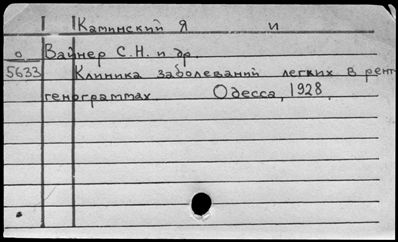 Каминский Я и
о Вайнер С.Н. и др.
5633 Клиника заболеваний легких в рент
генограммах. Одесса, 1928.